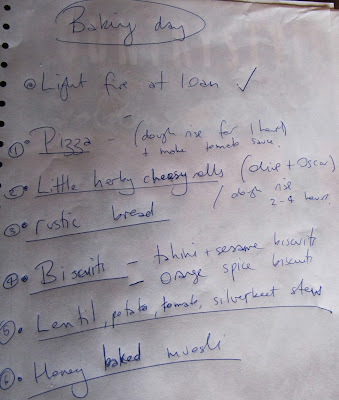 Baking day
@ Light fire at 10am ✓
① • Pizza - (dough rise for 1 hour)
+ make tomato sauce.
② • Little herby cheesy rolls (olive + Oscar)
③ • rustic bread / dough rise
2-4 hours.
④ • Biscuits - tahini + sesame biscuits
- orange spice biscuits
⑤ • Lentil, potato, tomato, silverbeet stew
⑥ • Honey baked muesli